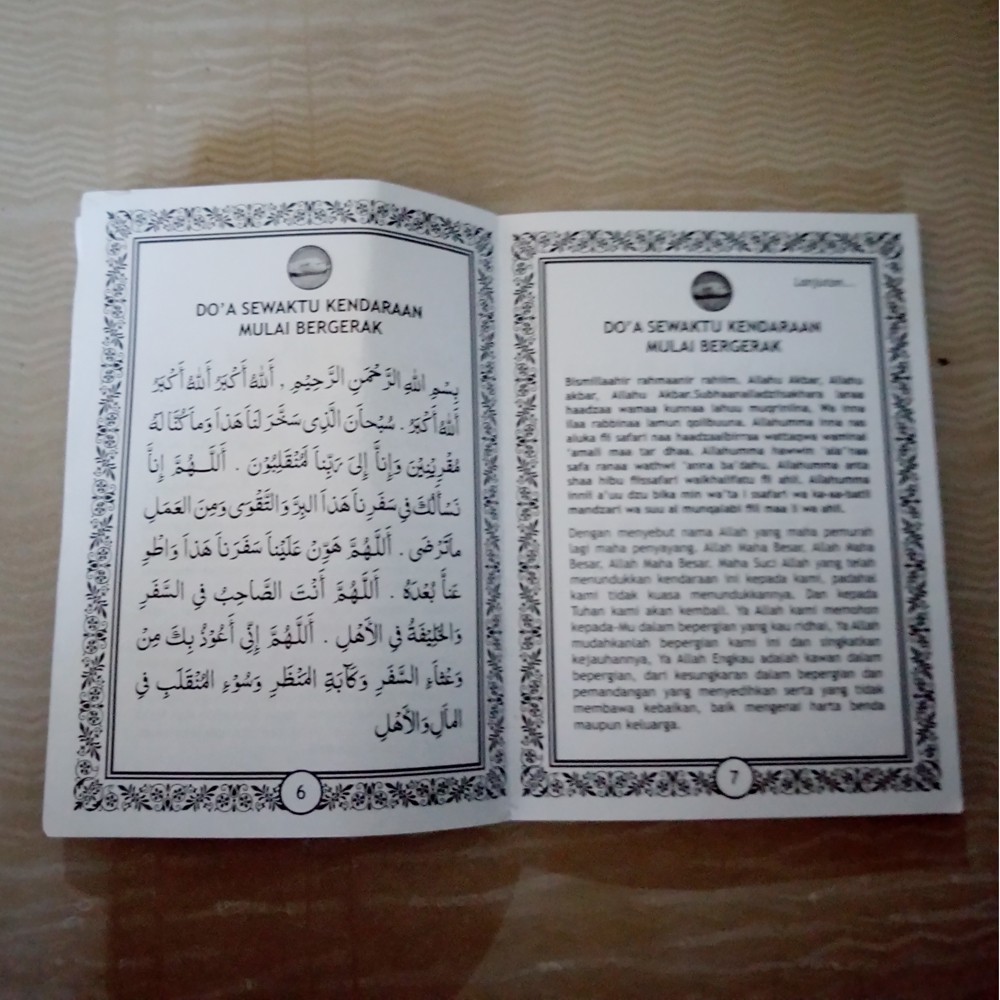 DO'A SEWAKTU KENDARAAN
MULAI BERGERAK
بِسْمِ اللهِ الرَّحْمَنِ الرَّحِيْمِ , أَللهُ أَكْبَرُ أَللهُ أَكْبَرُ
أَللهُ أَكْبَرُ . سُبْحَانَ الَّذِى سَخَّرَ لَنَا هَذَا وَمَا كُنَّا لَهُ
مُقْرِنِيْنَ وَإِنَّا إِلَى رَبِّنَا لَمُنْقَلِبُوْنَ . أَللَّهُمَّ إِنَّا
نَسْأَلُكَ فِي سَفَرِنَا هَذَا الْبِرَّ وَالتَّقْوَى وَمِنَ الْعَمَلِ
مَا تَرْضَى . أَللَّهُمَّ هَوِّنْ عَلَيْنَا سَفَرَنَا هَذَا وَاطْوِ
عَنَّا بُعْدَهُ . أَللَّهُمَّ أَنْتَ الصَّاحِبُ فِي السَّفَرِ
وَالْخَلِيْفَةُ فِي الْأَهْلِ . أَللَّهُمَّ إِنِّي أَعُوْذُ بِكَ مِنْ
وَعْثَاءِ السَّفَرِ وَكَآبَةِ الْمَنْظَرِ وَسُوْءِ الْمُنْقَلَبِ فِي
الْمَالِ وَالْأَهْلِ
6
Lanjutan...
DO'A SEWAKTU KENDARAAN
MULAI BERGERAK
Bismillaahir rahmaanir rahiim, Allahu Akbar, Allahu
akbar, Allahu Akbar.Subhaanalladziisakhara lanaa
haadzaa wamaa kunnaa lahuu muqriniina, Wa inna
ilaa rabbinaa lamun qolibuuna. Allahumma inna nas
aluka fii safari naa haadzaalbirraa wattaqwa waminal
'amali maa tar dhaa. Allahumma hawwin 'ala'naa
safa ranaa wathwi 'anna ba'dahu. Allahumma anta
shaa hibu fiissafari walkhalifatu fii ahli, Allahumma
innii a'uu dzu bika min wa'ta i ssafari wa ka-aa-batil
mandzari wa suu al munqalabi fiil maa li wa ahli.
Dengan menyebut nama Allah yang maha pemurah
lagi maha penyayang. Allah Maha Besar, Allah Maha
Besar, Allah Maha Besar. Maha Suci Allah yang telah
menundukkan kendaraan ini kepada kami, padahal
kami tidak kuasa menundukkannya. Dan kepada
Tuhan kami akan kembali. Ya Allah kami memohon
kepada-Mu dalam bepergian yang kau ridhai, Ya Allah
mudahkanlah bepergian kami ini dan singkatkan
kejauhannya, Ya Allah Engkau adalah kawan dalam
bepergian, dari kesungkaran dalam bepergian dan
pemandangan yang menyedihkan serta yang tidak
membawa kebaikan, baik mengenai harta benda
maupun keluarga.
7